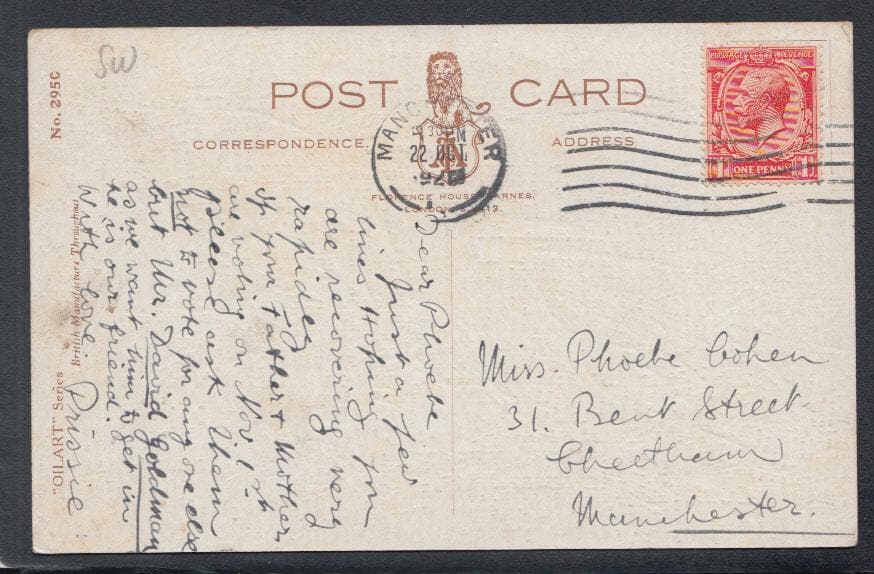 SW
No. 295C
POST CARD
CORRESPONDENCE.
ADDRESS
MANCHESTER
30 PM
22 OCT
192
FLORENCE HOUSE, BARNES,
LONDON, S.W.13.
POSTAGE REVENUE
ONE PENNY
Dear Phoebe
Just a few
lines Hoping you
are recovering very
rapidley
If your Father & Mother
are voting on Nov. 1st
please ask them
not to vote for any one else
but Mr. David Goldman
as we want him to get in
he is our friend.
With love. Prissie
Miss. Phoebe Cohen
31. Bent Street.
Cheetham
Manchester.
"OILART" Series
British Manufacture Throughout